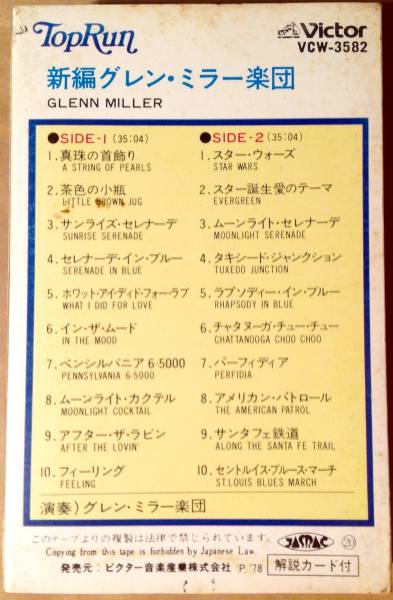 TopRun
Victor
VCW-3582
新編グレン・ミラー楽団
GLENN MILLER
●SIDE-1 (35:04)
1.真珠の首飾り
A STRING OF PEARLS
2.茶色の小瓶
LITTLE BROWN JUG
3.サンライズ・セレナーデ
SUNRISE SERENADE
4.セレナーデ・イン・ブルー
SERENADE IN BLUE
5.ホワット・アイ・ディド・フォー・ラブ
WHAT I DID FOR LOVE
6.イン・ザ・ムード
IN THE MOOD
7.ペンシルバニア 6-5000
PENNSYLVANIA 6-5000
8.ムーンライト・カクテル
MOONLIGHT COCKTAIL
9.アフター・ザ・ラビン
AFTER THE LOVIN'
10.フィーリング
FEELING
●SIDE-2 (35:04)
1.スター・ウォーズ
STAR WARS
2.スター誕生愛のテーマ
EVERGREEN
3.ムーンライト・セレナーデ
MOONLIGHT SERENADE
4.タキシード・ジャンクション
TUXEDO JUNCTION
5.ラプソディー・イン・ブルー
RHAPSODY IN BLUE
6.チャタヌーガ・チュー・チュー
CHATTANOOGA CHOO CHOO
7.パーフィディア
PERFIDIA
8.アメリカン・パトロール
THE AMERICAN PATROL
9.サンタフェ鉄道
ALONG THE SANTA FE TRAIL
10.セントルイス・ブルース・マーチ
ST.LOUIS BLUES MARCH
演奏）グレン・ミラー楽団
このテープよりの複製は法律で禁じられています.
Copying from this tape is forbidden by Japanese Law.
JASRAC
20
発売元：ビクター音楽産業株式会社 P.'78
解説カード付
4